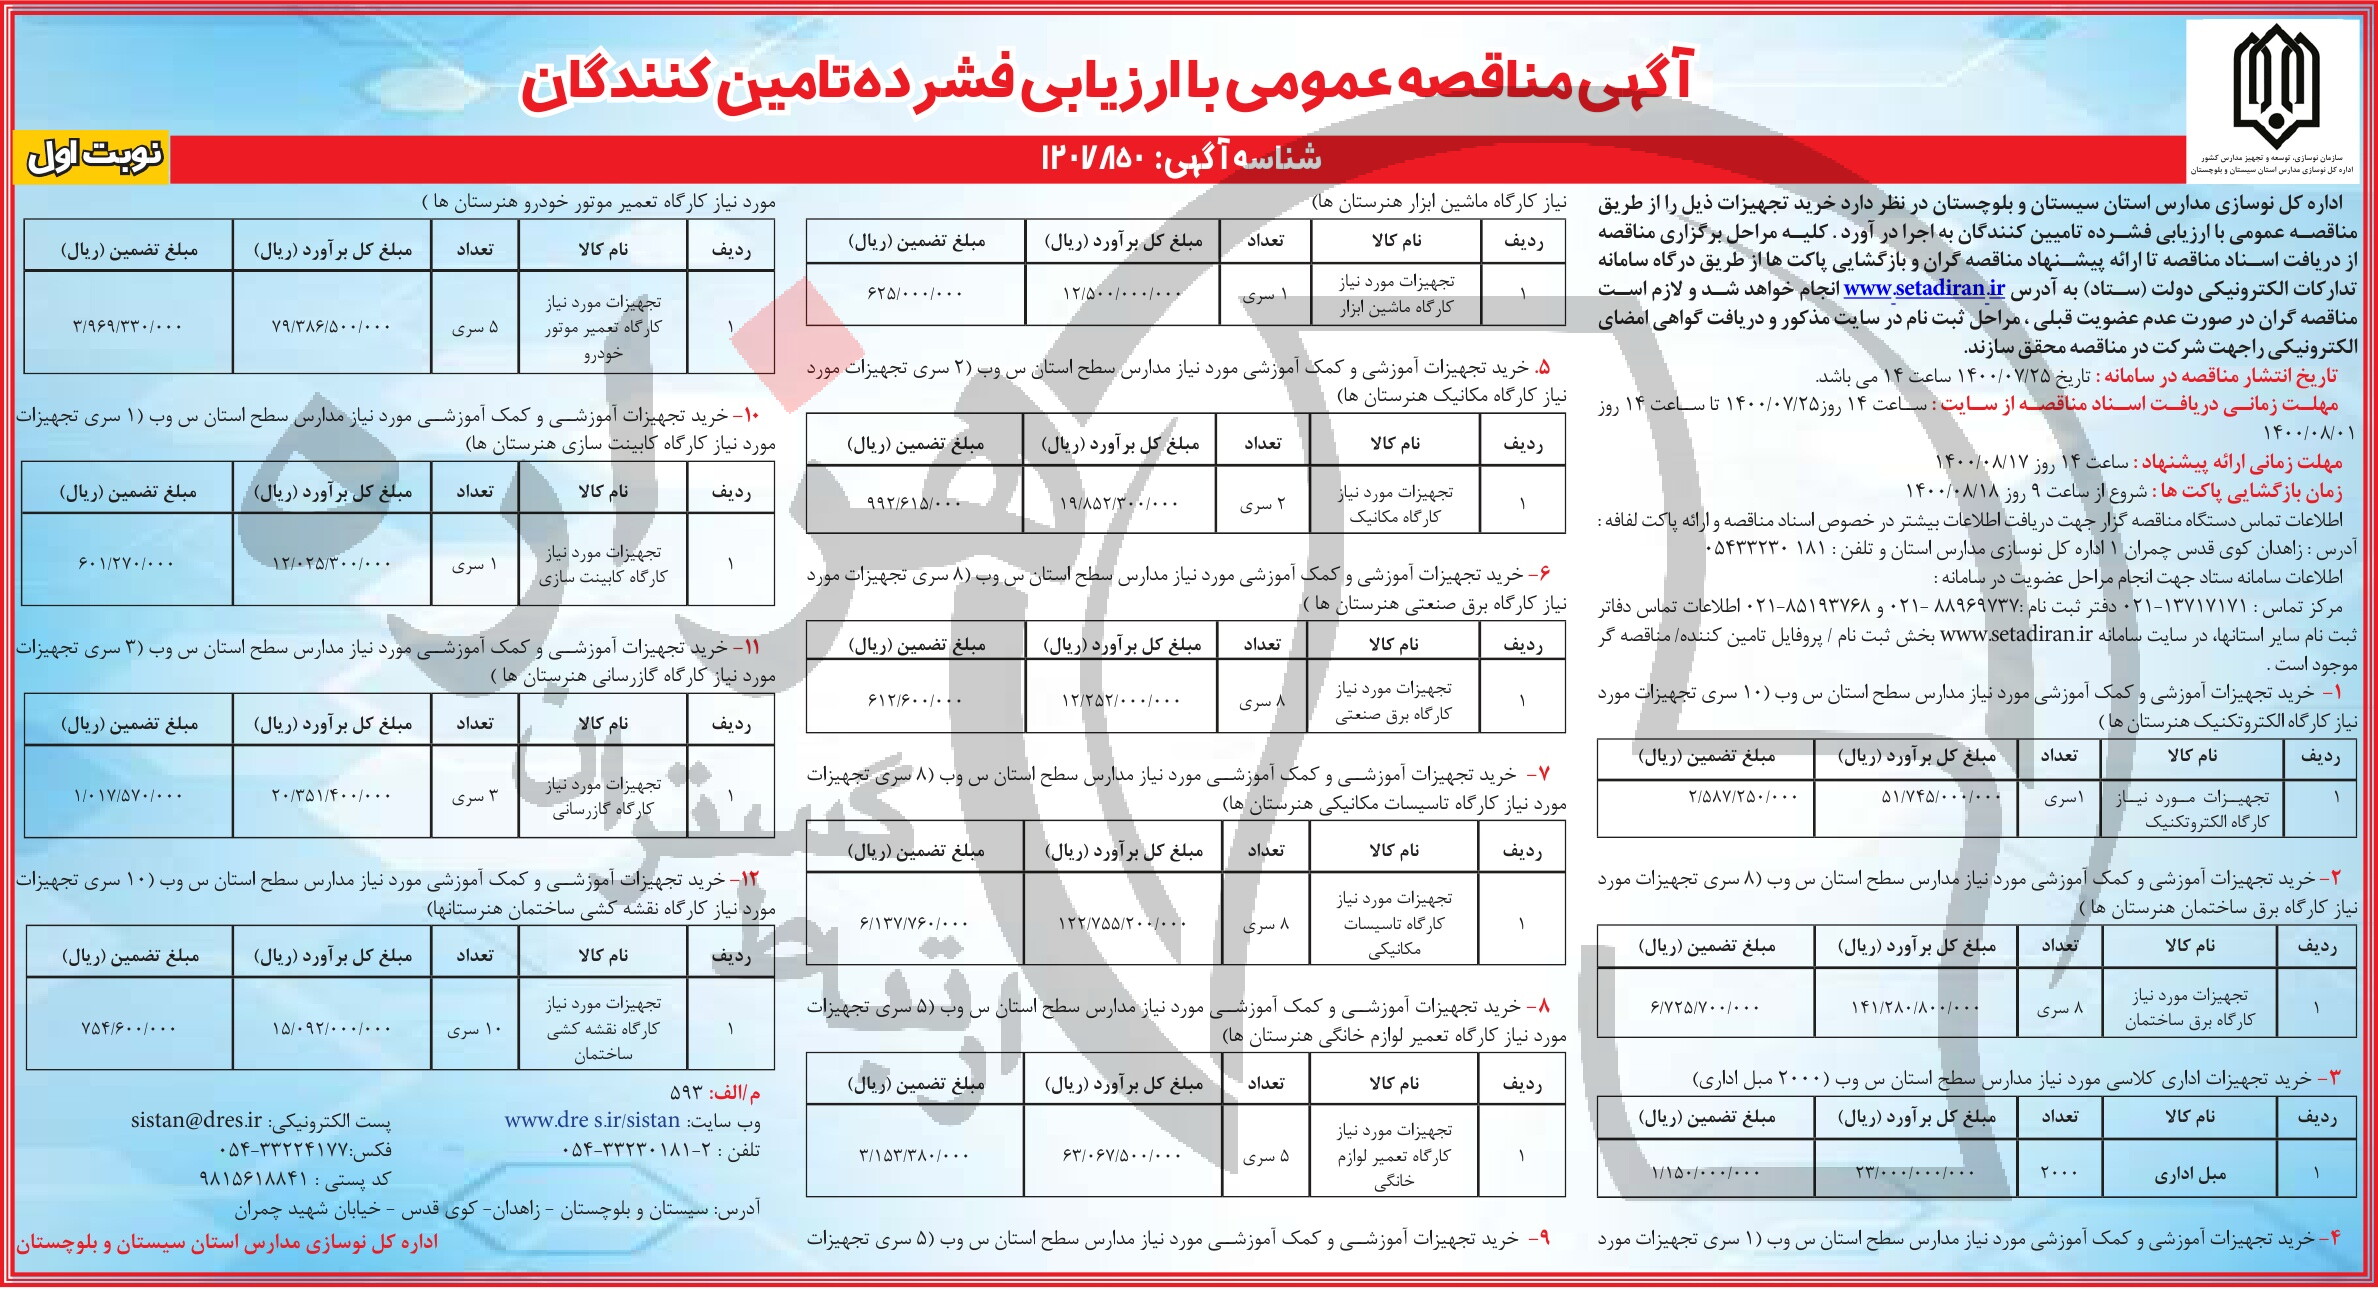 آگهی مناقصه عمومی با ارزیابی فشرده تامین کنندگان
شناسه آگهی: ۱۲۰۱۷۸۵۰
نوبت اول
سازمان نوسازی، توسعه و تجهیز مدارس کشور
اداره کل نوسازی مدارس استان سیستان و بلوچستان
اداره کل نوسازی مدارس استان سیستان و بلوچستان در نظر دارد خرید تجهیزات ذیل را از طریق
مناقصه عمومی با ارزیابی فشرده تامیین کنندگان به اجرا در آورد . کلیه مراحل برگزاری مناقصه
از دریافت اسناد مناقصه تا ارائه پیشنهاد مناقصه گران و بازگشایی پاکت ها از طریق درگاه سامانه
تدارکات الکترونیکی دولت (ستاد) به آدرس www.setadiran.ir انجام خواهد شد و لازم است
مناقصه گران در صورت عدم عضویت قبلی ، مراحل ثبت نام در سایت مذکور و دریافت گواهی امضای
الکترونیکی را جهت شرکت در مناقصه محقق سازند.
تاریخ انتشار مناقصه در سامانه : تاریخ ۱۴۰۰/۰۷/۲۵ ساعت ۱۴ می باشد.
مهلت زمانی دریافت اسناد مناقصه از سایت : ساعت ۱۴ روز ۱۴۰۰/۰۷/۲۵ تا ساعت ۱۴ روز
۱۴۰۰/۰۸/۰۱
مهلت زمانی ارائه پیشنهاد : ساعت ۱۴ روز ۱۴۰۰/۰۸/۱۷
زمان بازگشایی پاکت ها : شروع از ساعت ۹ روز ۱۴۰۰/۰۸/۱۸
اطلاعات تماس دستگاه مناقصه گزار جهت دریافت اطلاعات بیشتر در خصوص اسناد مناقصه و ارائه پاکت لفافه :
آدرس : زاهدان کوی قدس چمران ۱ اداره کل نوسازی مدارس استان و تلفن : ۱۸۱ ۰۵۴۳۳۲۳۰
اطلاعات سامانه ستاد جهت انجام مراحل عضویت در سامانه :
مرکز تماس : ۱۳۷۱۷۱۷۱-۰۲۱ دفتر ثبت نام :۸۸۹۶۹۷۳۷ -۰۲۱ و ۸۵۱۹۳۷۶۸-۰۲۱ اطلاعات تماس دفاتر
ثبت نام سایر استانها، در سایت سامانه www.setadiran.ir بخش ثبت نام / پروفایل تامین کننده/ مناقصه گر
موجود است .
۱- خرید تجهیزات آموزشی و کمک آموزشی مورد نیاز مدارس سطح استان س وب (۱۰ سری تجهیزات مورد
نیاز کارگاه الکتروتکنیک هنرستان ها )
ردیف نام کالا تعداد مبلغ کل برآورد (ریال) مبلغ تضمین (ریال)
۱ تجهیزات مورد نیاز ۱سری ۵۱/۷۴۵/۰۰۰/۰۰۰ ۲/۵۸۷/۲۵۰/۰۰۰
کارگاه الکتروتکنیک
۲- خرید تجهیزات آموزشی و کمک آموزشی مورد نیاز مدارس سطح استان س وب (۸ سری تجهیزات مورد
نیاز کارگاه برق ساختمان هنرستان ها )
ردیف نام کالا تعداد مبلغ کل برآورد (ریال) مبلغ تضمین (ریال)
تجهیزات مورد نیاز
۱ کارگاه برق ساختمان ۸ سری ۱۴۱/۲۸۰/۸۰۰/۰۰۰ ۶/۷۲۵/۷۰۰/۰۰۰
۳- خرید تجهیزات اداری کلاسی مورد نیاز مدارس سطح استان س وب (۲۰۰۰ مبل اداری)
ردیف نام کالا تعداد مبلغ کل برآورد (ریال) مبلغ تضمین (ریال)
۱ مبل اداری ۲۰۰۰ ۲۳/۰۰۰/۰۰۰/۰۰۰ ۱/۱۵۰/۰۰۰/۰۰۰
۴- خرید تجهیزات آموزشی و کمک آموزشی مورد نیاز مدارس سطح استان س وب (۱ سری تجهیزات مورد
نیاز کارگاه ماشین ابزار هنرستان ها)
ردیف نام کالا تعداد مبلغ کل برآورد (ریال) مبلغ تضمین (ریال)
تجهیزات مورد نیاز
۱ کارگاه ماشین ابزار ۱ سری ۱۲/۵۰۰/۰۰۰/۰۰۰ ۶۲۵/۰۰۰/۰۰۰
۵. خرید تجهیزات آموزشی و کمک آموزشی مورد نیاز مدارس سطح استان س وب (۲ سری تجهیزات مورد
نیاز کارگاه مکانیک هنرستان ها)
ردیف نام کالا تعداد مبلغ کل برآورد (ریال) مبلغ تضمین (ریال)
تجهیزات مورد نیاز
۱ کارگاه مکانیک ۲ سری ۱۹/۸۵۲/۳۰۰/۰۰۰ ۹۹۲/۶۱۵/۰۰۰
۶- خرید تجهیزات آموزشی و کمک آموزشی مورد نیاز مدارس سطح استان س وب (۸ سری تجهیزات مورد
نیاز کارگاه برق صنعتی هنرستان ها )
ردیف نام کالا تعداد مبلغ کل برآورد (ریال) مبلغ تضمین (ریال)
تجهیزات مورد نیاز
۱ کارگاه برق صنعتی ۸ سری ۱۲/۲۵۲/۰۰۰/۰۰۰ ۶۱۲/۶۰۰/۰۰۰
۷- خرید تجهیزات آموزشی و کمک آموزشی مورد نیاز مدارس سطح استان س وب (۸ سری تجهیزات
مورد نیاز کارگاه تاسیسات مکانیکی هنرستان ها)
ردیف نام کالا تعداد مبلغ کل برآورد (ریال) مبلغ تضمین (ریال)
تجهیزات مورد نیاز
۱ کارگاه تاسیسات ۸ سری ۱۲۲/۷۵۵/۲۰۰/۰۰۰ ۶/۱۳۷/۷۶۰/۰۰۰
مکانیکی
۸- خرید تجهیزات آموزشی و کمک آموزشی مورد نیاز مدارس سطح استان س وب (۵ سری تجهیزات
مورد نیاز کارگاه تعمیر لوازم خانگی هنرستان ها)
ردیف نام کالا تعداد مبلغ کل برآورد (ریال) مبلغ تضمین (ریال)
تجهیزات مورد نیاز
۱ کارگاه تعمیر لوازم ۵ سری ۶۳/۰۶۷/۵۰۰/۰۰۰ ۳/۱۵۳/۳۸۰/۰۰۰
خانگی
۹- خرید تجهیزات آموزشی و کمک آموزشی مورد نیاز مدارس سطح استان س وب (۵ سری تجهیزات
مورد نیاز کارگاه تعمیر موتور خودرو هنرستان ها )
ردیف نام کالا تعداد مبلغ کل برآورد (ریال) مبلغ تضمین (ریال)
تجهیزات مورد نیاز
۱ کارگاه تعمیر موتور ۵ سری ۷۹/۳۸۶/۵۰۰/۰۰۰ ۳/۹۶۹/۳۳۰/۰۰۰
خودرو
۱۰- خرید تجهیزات آموزشی و کمک آموزشی مورد نیاز مدارس سطح استان س وب (۱ سری تجهیزات
مورد نیاز کارگاه کابینت سازی هنرستان ها)
ردیف نام کالا تعداد مبلغ کل برآورد (ریال) مبلغ تضمین (ریال)
تجهیزات مورد نیاز
۱ کارگاه کابینت سازی ۱ سری ۱۲/۰۲۵/۳۰۰/۰۰۰ ۶۰۱/۲۷۰/۰۰۰
۱۱- خرید تجهیزات آموزشی و کمک آموزشی مورد نیاز مدارس سطح استان س وب (۳ سری تجهیزات
مورد نیاز کارگاه گازرسانی هنرستان ها )
ردیف نام کالا تعداد مبلغ کل برآورد (ریال) مبلغ تضمین (ریال)
تجهیزات مورد نیاز
۱ کارگاه گازرسانی ۳ سری ۲۰/۳۵۱/۴۰۰/۰۰۰ ۱/۰۱۷/۵۷۰/۰۰۰
۱۲- خرید تجهیزات آموزشی و کمک آموزشی مورد نیاز مدارس سطح استان س وب (۱۰ سری تجهیزات
مورد نیاز کارگاه نقشه کشی ساختمان هنرستانها)
ردیف نام کالا تعداد مبلغ کل برآورد (ریال) مبلغ تضمین (ریال)
تجهیزات مورد نیاز
۱ کارگاه نقشه کشی ۱۰ سری ۱۵/۰۹۲/۰۰۰/۰۰۰ ۷۵۴/۶۰۰/۰۰۰
ساختمان
م/الف: ۵۹۳
وب سایت: www.dre s.ir/sistan پست الکترونیکی: sistan@dres.ir
تلفن : ۲-۳۳۲۳۰۱۸۱-۰۵۴ فکس:۳۳۲۲۴۱۷۷-۰۵۴
کد پستی : ۹۸۱۵۶۱۸۸۴۱
آدرس: سیستان و بلوچستان - زاهدان- کوی قدس - خیابان شهید چمران
اداره کل نوسازی مدارس استان سیستان و بلوچستان
هزاره
گستران
ارتباط